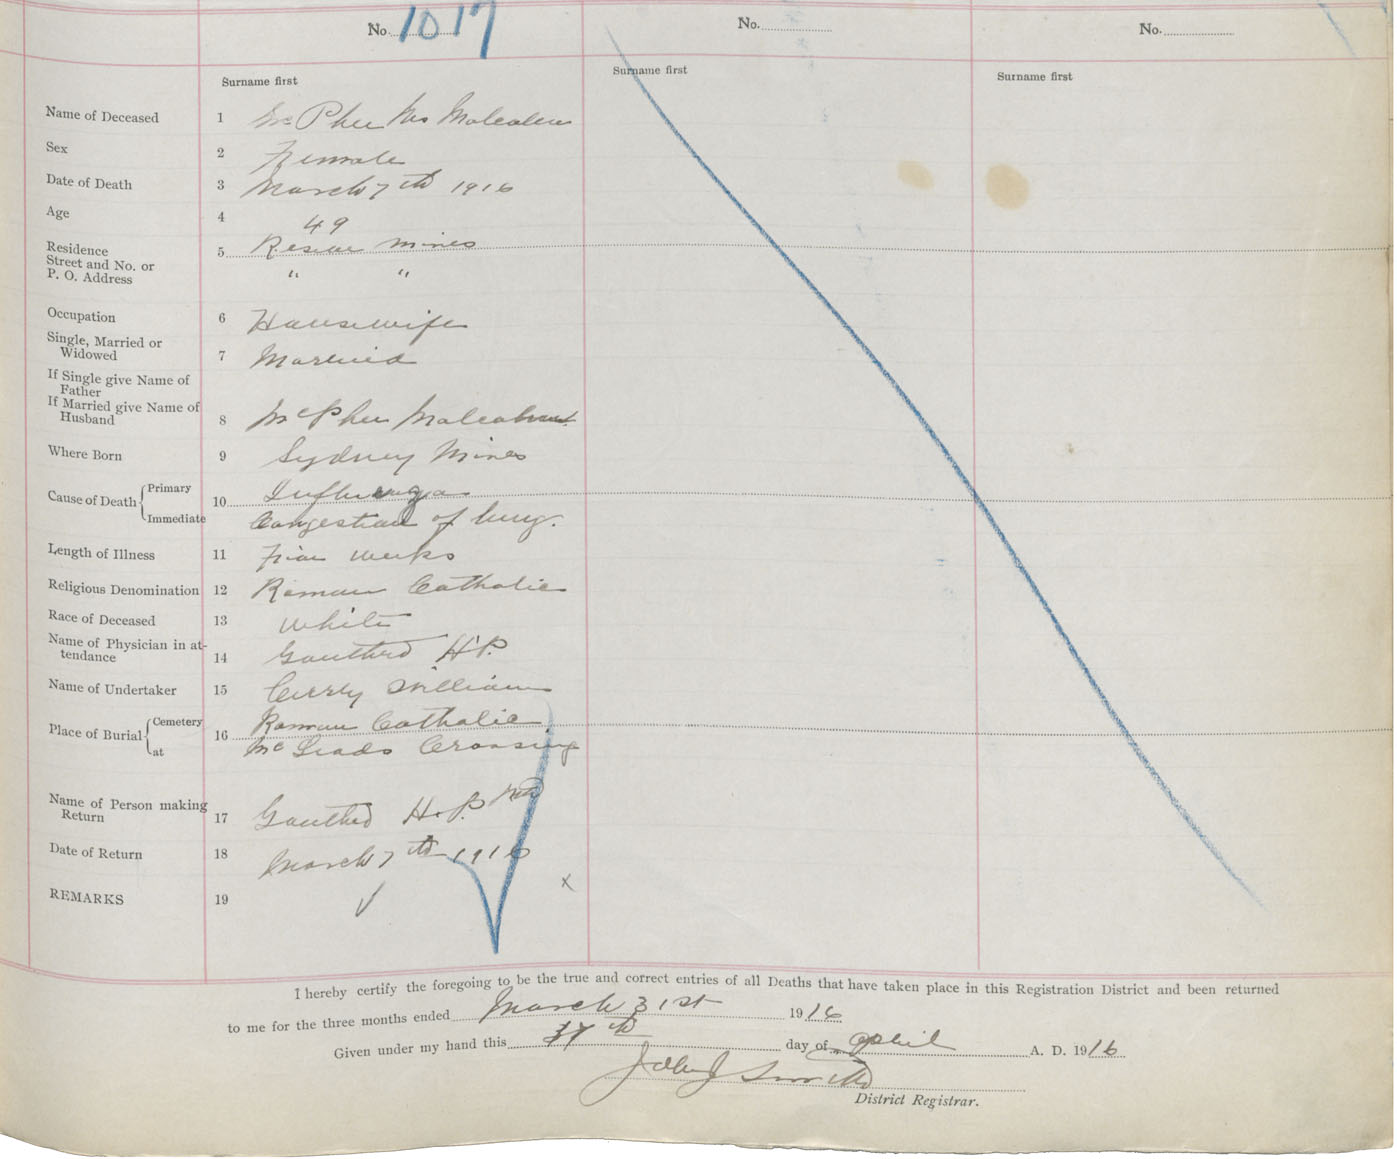 No. 1017
No.
No.
Surname first
Surname first
Surname first
Name of Deceased 1 McPhee Mrs Malcolm
Sex 2 Female
Date of Death 3 March 7th 1916
Age 4 49
Residence
Street and No. or
P. O. Address
5 Reserve Mines
" "
Occupation 6 Housewife
Single, Married or
Widowed
7 Married
If Single give Name of
Father
If Married give Name of
Husband
8 McPhee Malcolm
Where Born 9 Sydney Mines
Cause of Death Primary 10 Influenza
Immediate Congestion of lung.
Length of Illness 11 weeks
Religious Denomination 12 Roman Catholic
Race of Deceased 13 White
Name of Physician in at-
tendance
14 Gouthro H.P.
Name of Undertaker 15 Curry William
Place of Burial Cemetery 16 Roman Catholic
at McLeods Crossing
Name of Person making
Return
17 Gouthro H.P.
Date of Return 18 March 7th 1916
REMARKS 19
I hereby certify the foregoing to be the true and correct entries of all Deaths that have taken place in this Registration District and been returned
to me for the three months ended March 31st 1916
Given under my hand this day of April A. D. 1916
John J Smith
District Registrar.